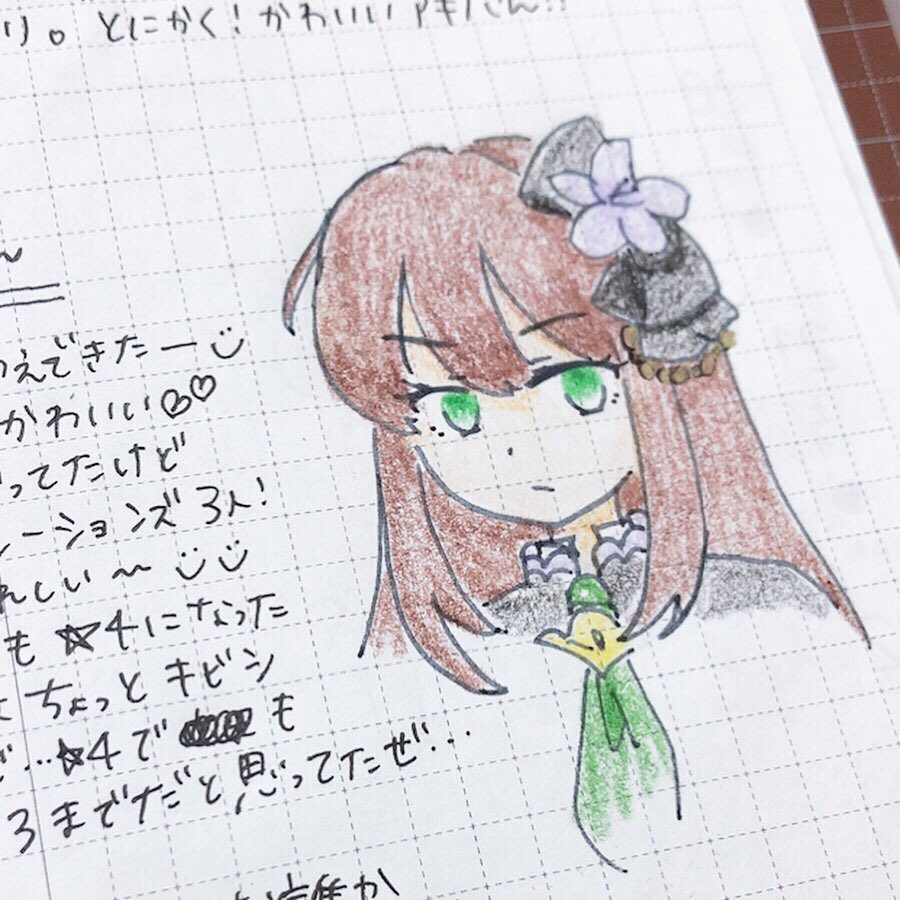 り。とにかく！かわいいアキバさん!!
えできたー
かわいい♡♡
ってたけど
レーションズ 3人！
れしい〜
も ☆4になった
ちょっとキビシ
…☆4で も
3までだと思ってたぜ…